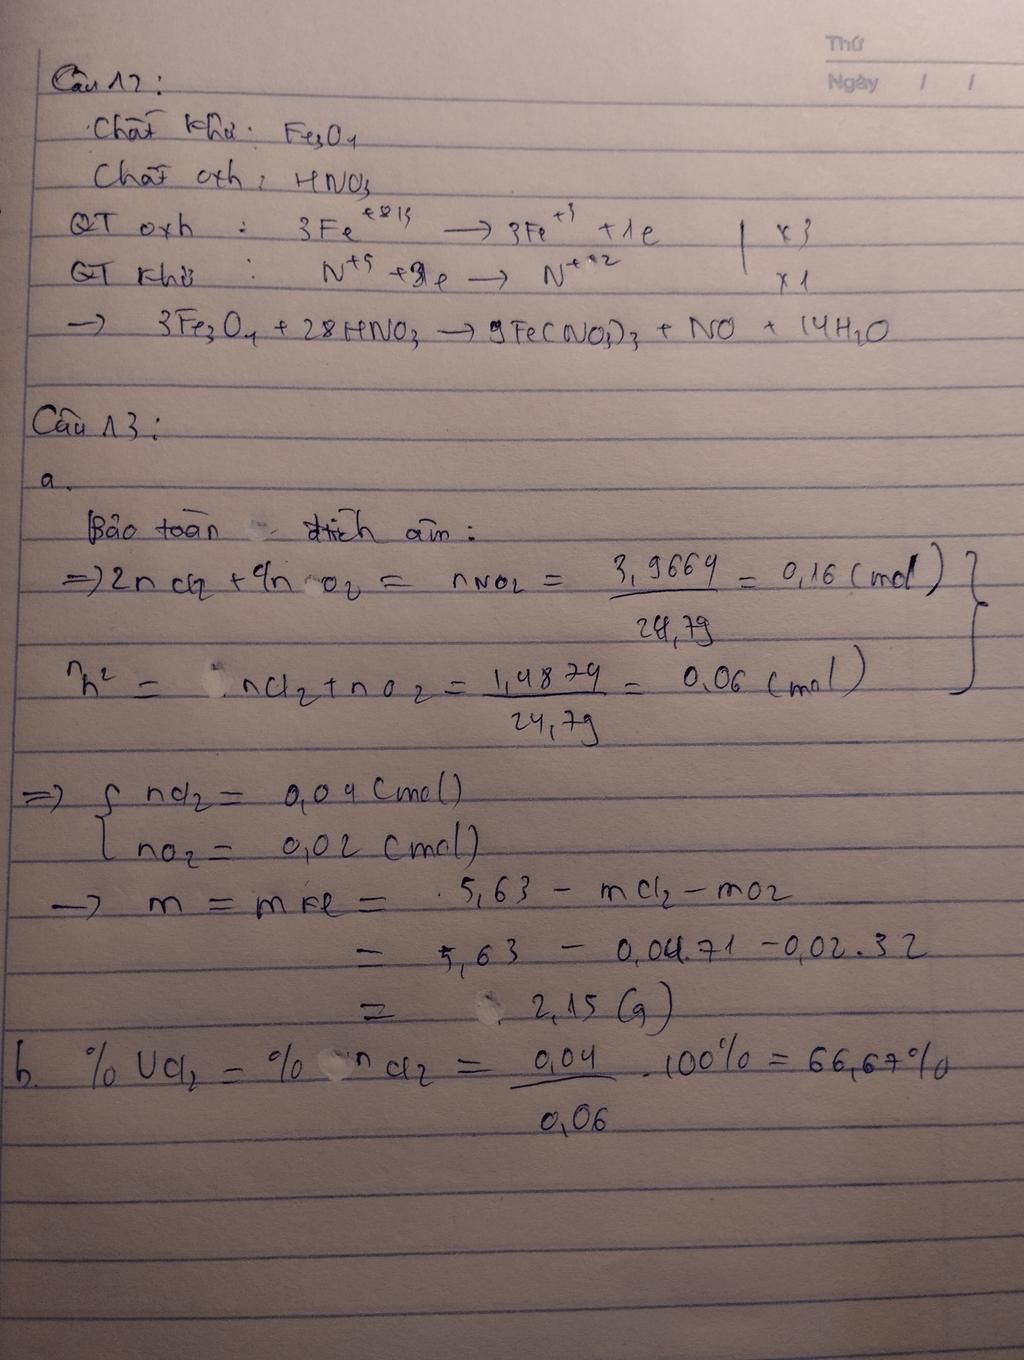 Thứ
Ngày / /
Câu 12:
Chất khử: Fe3O4
Chất oxh: HNO3
QT oxh : 3Fe^+8/3 → 3Fe^+3 + 1e | x3
QT khử : N^+5 + 3e → N^+2 | x1
→ 3Fe3O4 + 28HNO3 → 9Fe(NO3)3 + NO + 14H2O
Câu 13:
a.
Bảo toàn âm:
=> 2nCl2 + 4nO2 = nNO2 = 3,9664 / 24,79 = 0,16 (mol)
= nCl2 + nO2 = 1,4874 / 24,79 = 0,06 (mol)
=> { nCl2 = 0,04 (mol)
nO2 = 0,02 (mol)
→ m = mKl = 5,63 - mCl2 - mO2
= 5,63 - 0,04.71 - 0,02.32
= 2,15 (g)
b. % VCl2 = % nCl2 = 0,04 / 0,06 .100% = 66,67%